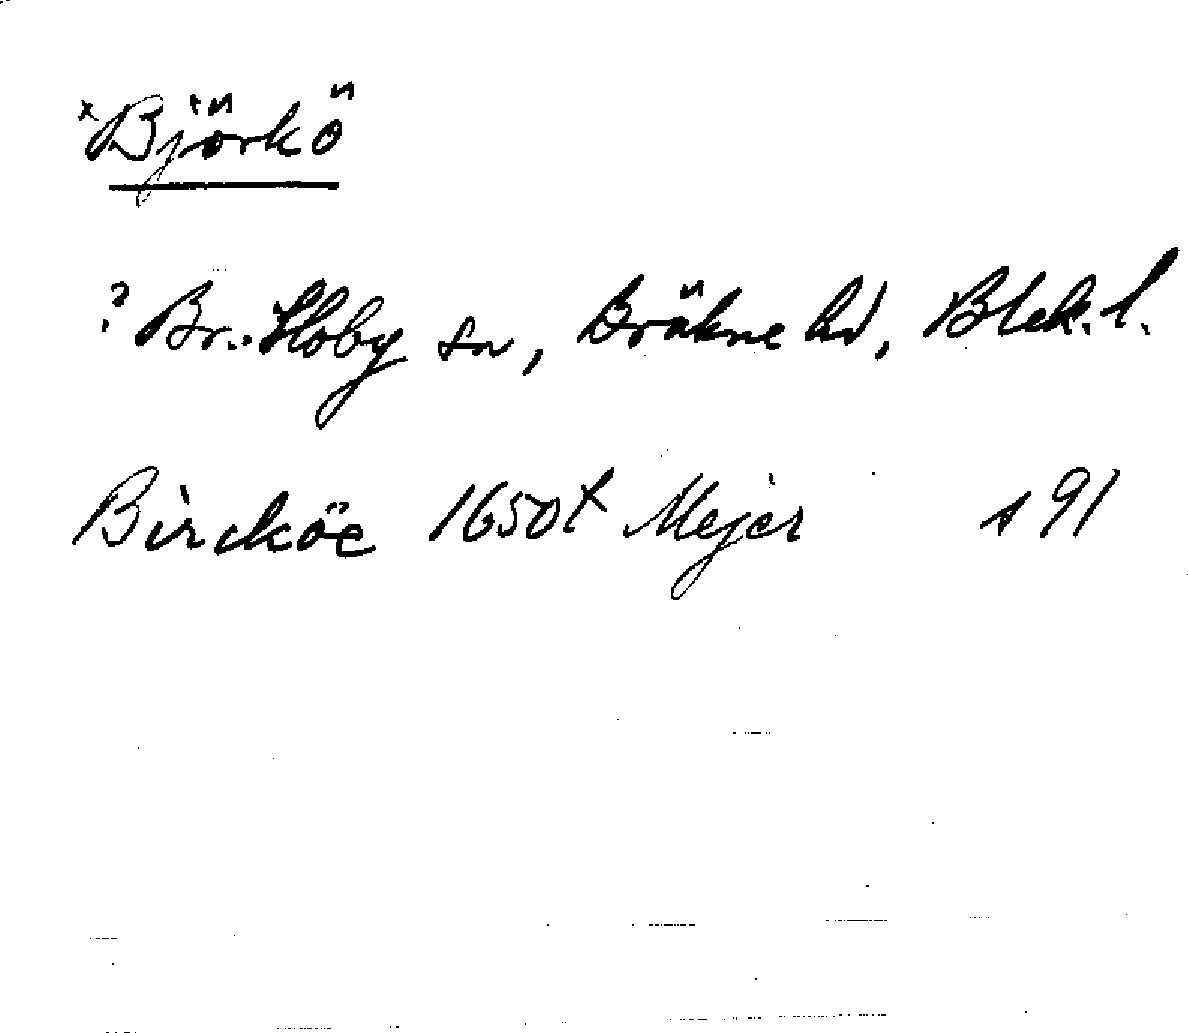 *Björkö
? Br.-Hoby sn, Bräkne hd, Blek. l.
Bircköe 1650t Mejer s 91